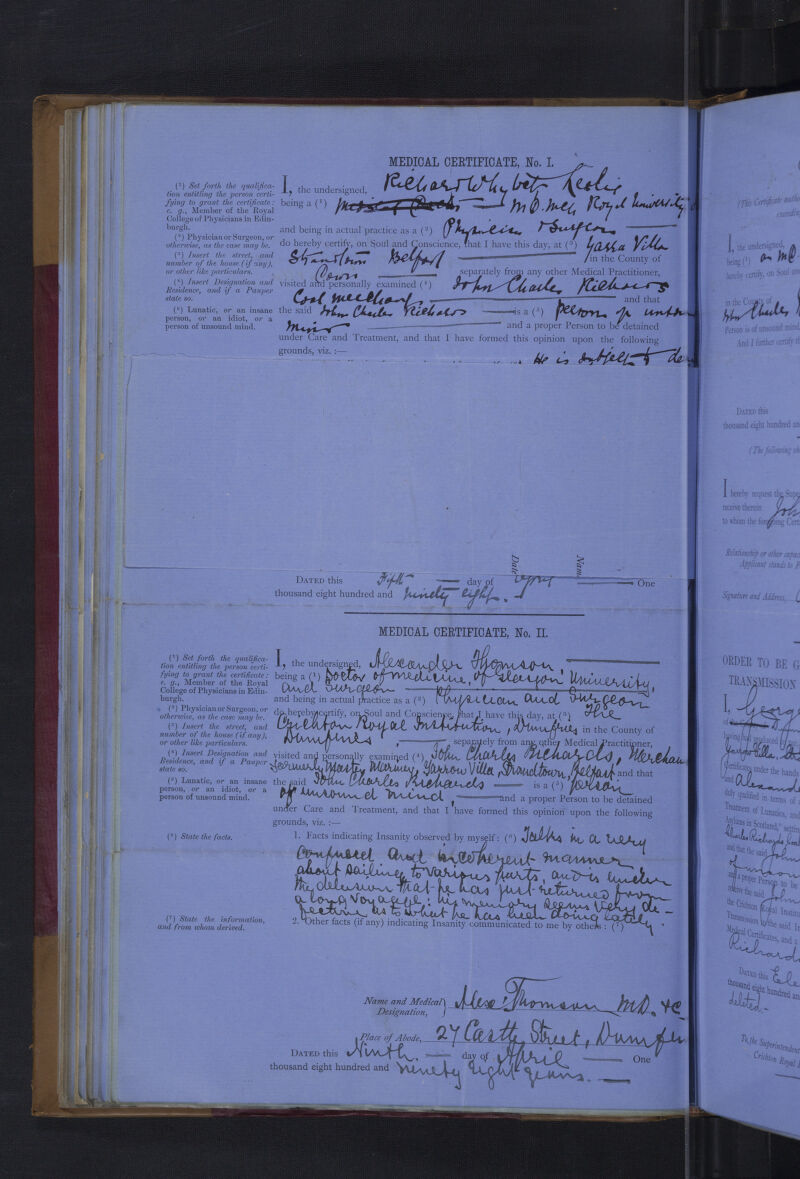 MEDICAL CERTIFICATE, No. I.
(1) Set forth the qualifica-
tion entitling the person certi-
fying to grant the certificate:
e. g., Member of the Royal
College of Physicians in Edin-
burgh.
(2) Physician or Surgeon, or
otherwise, as the case may be.
(3) Insert the street, and
number of the house (if any),
or other like particulars.
(4) Insert Designation and
Residence, and if a Pauper
state so.
(5) Lunatic, or an insane
person, or an idiot, or a
person of unsound mind.
I, the undersigned, Richard Whytock Leslie
being a (1) M.D. Mch Royal University
and being in actual practice as a (2) Physician & Surgeon
do hereby certify, on Soul and Conscience, that I have this day, at (3) Yarra Villa
Strandtown Belfast in the County of
Down separately from any other Medical Practitioner,
visited and personally examined (4) John Charles Richards
Coal merchant and that
the said John Charles Richards is a (5) Person of unsound
mind and a proper Person to be detained
under Care and Treatment, and that I have formed this opinion upon the following
grounds, viz. :—
He is subject to
Date
Nam
DATED this Fifth day of April One
thousand eight hundred and ninety eight.
MEDICAL CERTIFICATE, No. II.
(1) Set forth the qualifica-
tion entitling the person certi-
fying to grant the certificate:
e. g., Member of the Royal
College of Physicians in Edin-
burgh.
(2) Physician or Surgeon, or
otherwise, as the case may be.
(3) Insert the street, and
number of the house (if any),
or other like particulars.
(4) Insert Designation and
Residence, and if a Pauper
state so.
(5) Lunatic, or an insane
person, or an idiot, or a
person of unsound mind.
(6) State the facts.
(7) State the information,
and from whom derived.
I, the undersigned, Alexander Thomson
being a (1) Doctor of medicine, of Glasgow University,
and Surgeon
and being in actual practice as a (2) Physician and Surgeon
do hereby certify, on Soul and Conscience, that I have this day, at (3) The
Crichton Royal Institution, Dumfries in the County of
Dumfries, separately from any other Medical Practitioner,
visited and personally examined (4) John Charles Richards, Merchan
formerly Master Mariner, Yarrow Villa, Strandtown, Belfast and that
the said John Charles Richards is a (5) person
of unsound mind, and a proper Person to be detained
under Care and Treatment, and that I have formed this opinion upon the following
grounds, viz. :—
1. Facts indicating Insanity observed by myself: (6) Talks in a very
confused and incoherent manner
about sailing to various parts, and is under
the delusion that he has just returned from
a long voyage: his memory seems very de-
fective as to what he has been doing lately.
2. Other facts (if any) indicating Insanity communicated to me by others: (7)
Name and Medical Designation, } Alexr Thomson M.D. &c
Place of Abode, 27 Castle Street, Dumfr
DATED this Ninth day of April One
thousand eight hundred and ninety eight years.
I, the undersigned,
being (1) an MD
hereby certify, on Soul
in the County of
John Charles
Person is of unsound mind
And I further certify
DATED this
thousand eight hundred an
(The following
I hereby request the Supe
receive therein John
to whom the foregoing Cert
Relationship or other capac
Applicant stands to P
Signature and Address,
ORDER TO BE G
TRANSMISSION
I, George
Certificates under the hands
and Alexand
duly qualified in terms of
Treatment of Lunatics, and
Asylums in Scotland," settin
Charles Richards
and that the said John
of unsoun
and a proper Person to be
the Crichton Royal Instit
Transmission of the said
Medical Certificates, and
Richard
DATED this Ele
thousand eight hundred an
deleted.
To the Superintendent
Crichton Royal